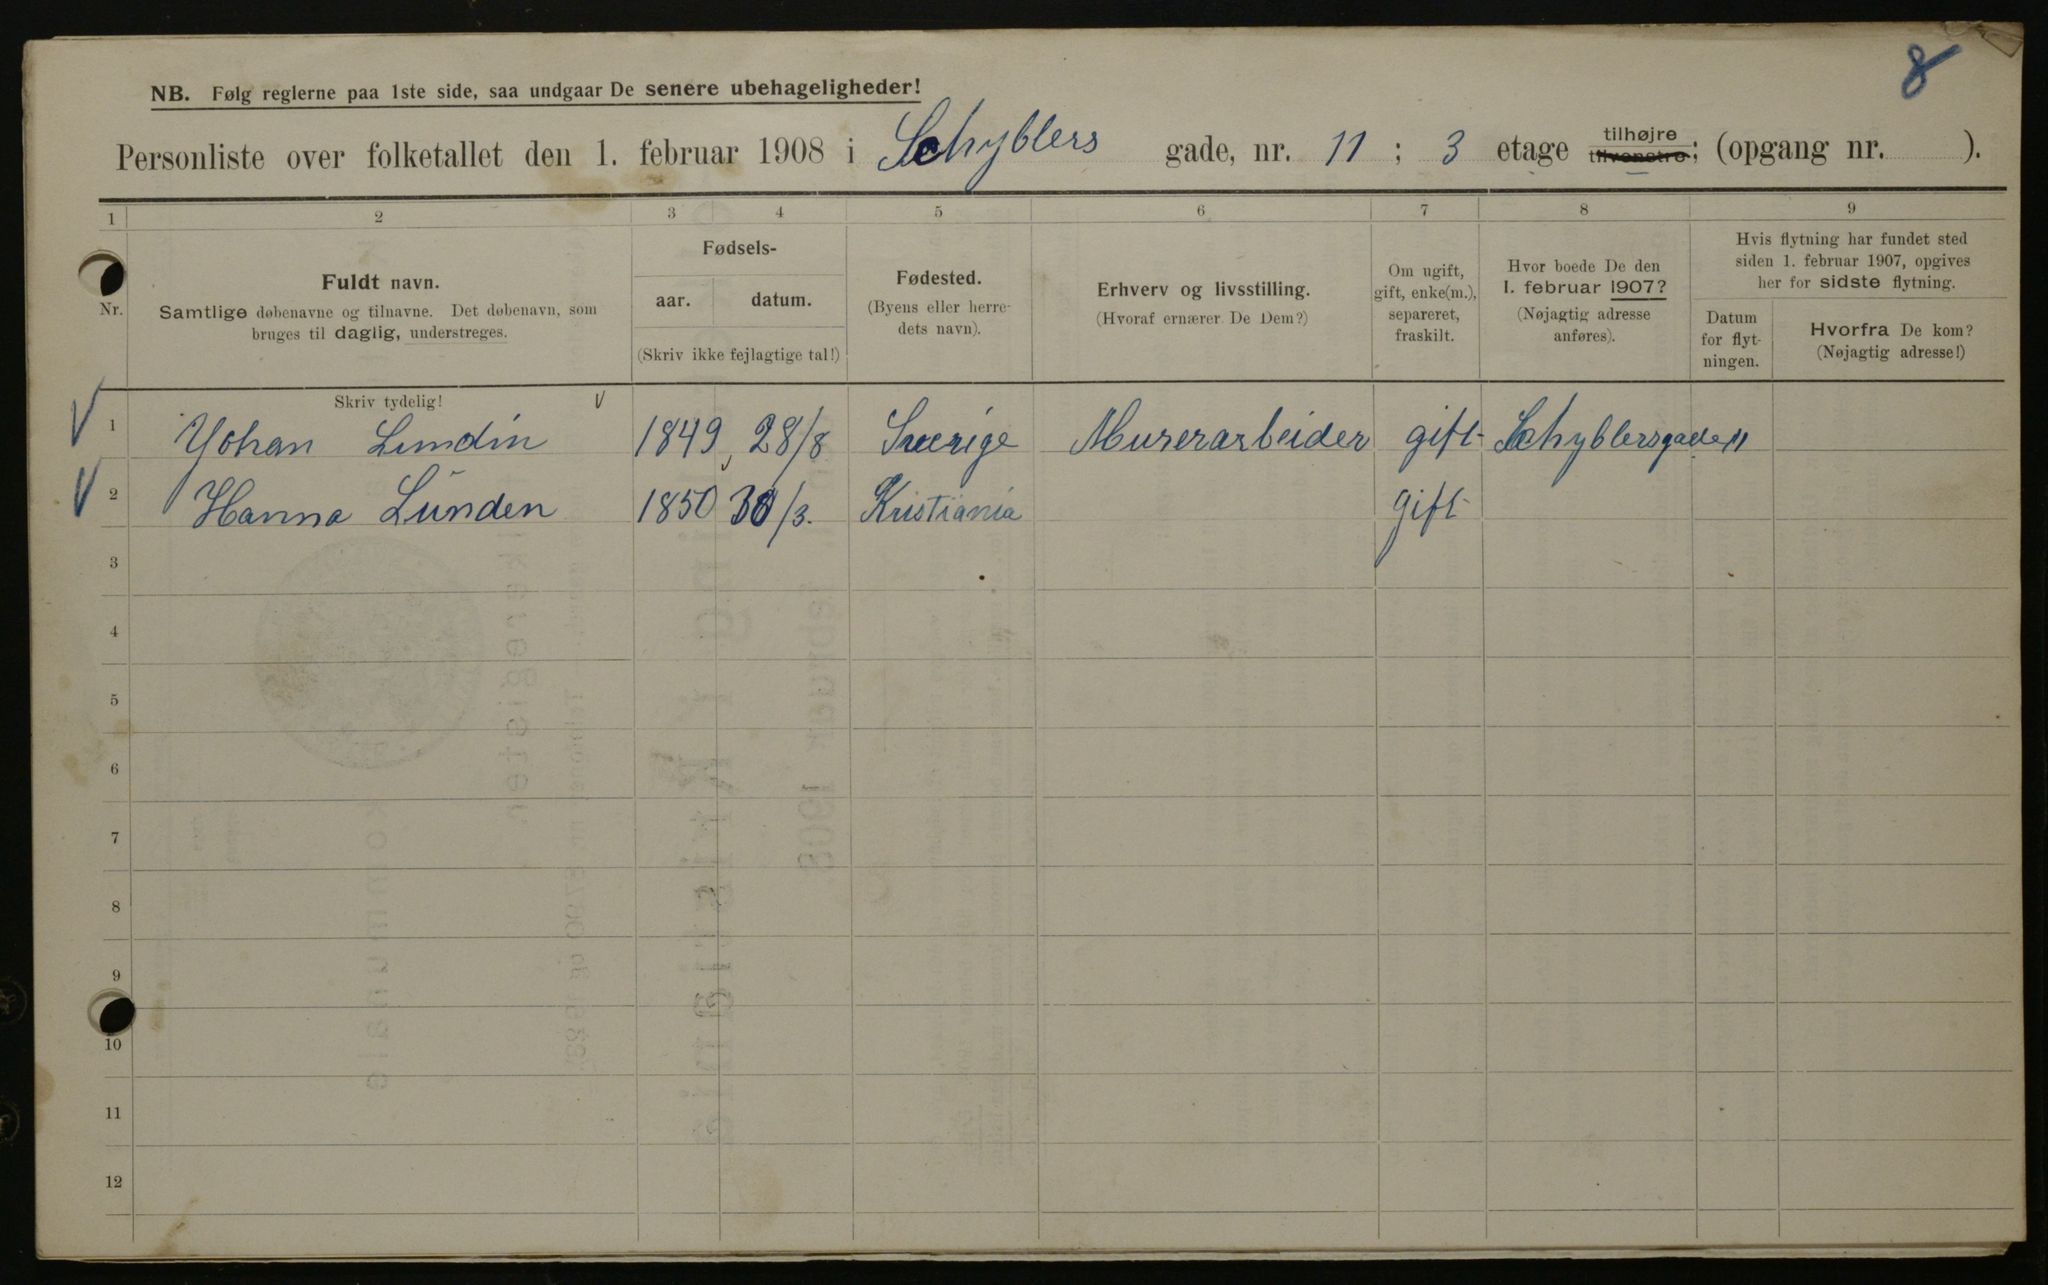 8
NB. Følg reglerne paa 1ste side, saa undgaar De senere ubehageligheder!
Personliste over folketallet den 1. februar 1908 i Schyblers gade, nr. 11 ; 3 etage tilhøjre tilvenstre; (opgang nr. ).
1 2 3 4 5 6 7 8 9
Nr.
Fuldt navn.
Samtlige døbenavne og tilnavne. Det døbenavn, som
bruges til daglig, understreges.
Fødsels-
aar. datum.
(Skriv ikke fejlagtige tal!)
Fødested.
(Byens eller herre-
dets navn).
Erhverv og livsstilling.
(Hvoraf ernærer De Dem?)
Om ugift,
gift, enke(m.),
separeret,
fraskilt.
Hvor boede De den
1. februar 1907?
(Nøjagtig adresse
anføres).
Hvis flytning har fundet sted
siden 1. februar 1907, opgives
her for sidste flytning.
Datum
for flyt-
ningen.
Hvorfra De kom?
(Nøjagtig adresse!)
Skriv tydelig!
1 Yohan Lundin 1849, 28/8 Sverige Murerarbeider gift Schyblersgade 11
2 Hanna Lunden 1850 30/3. Kristiania gift
3
4
5
6
7
8
9
10
11
12